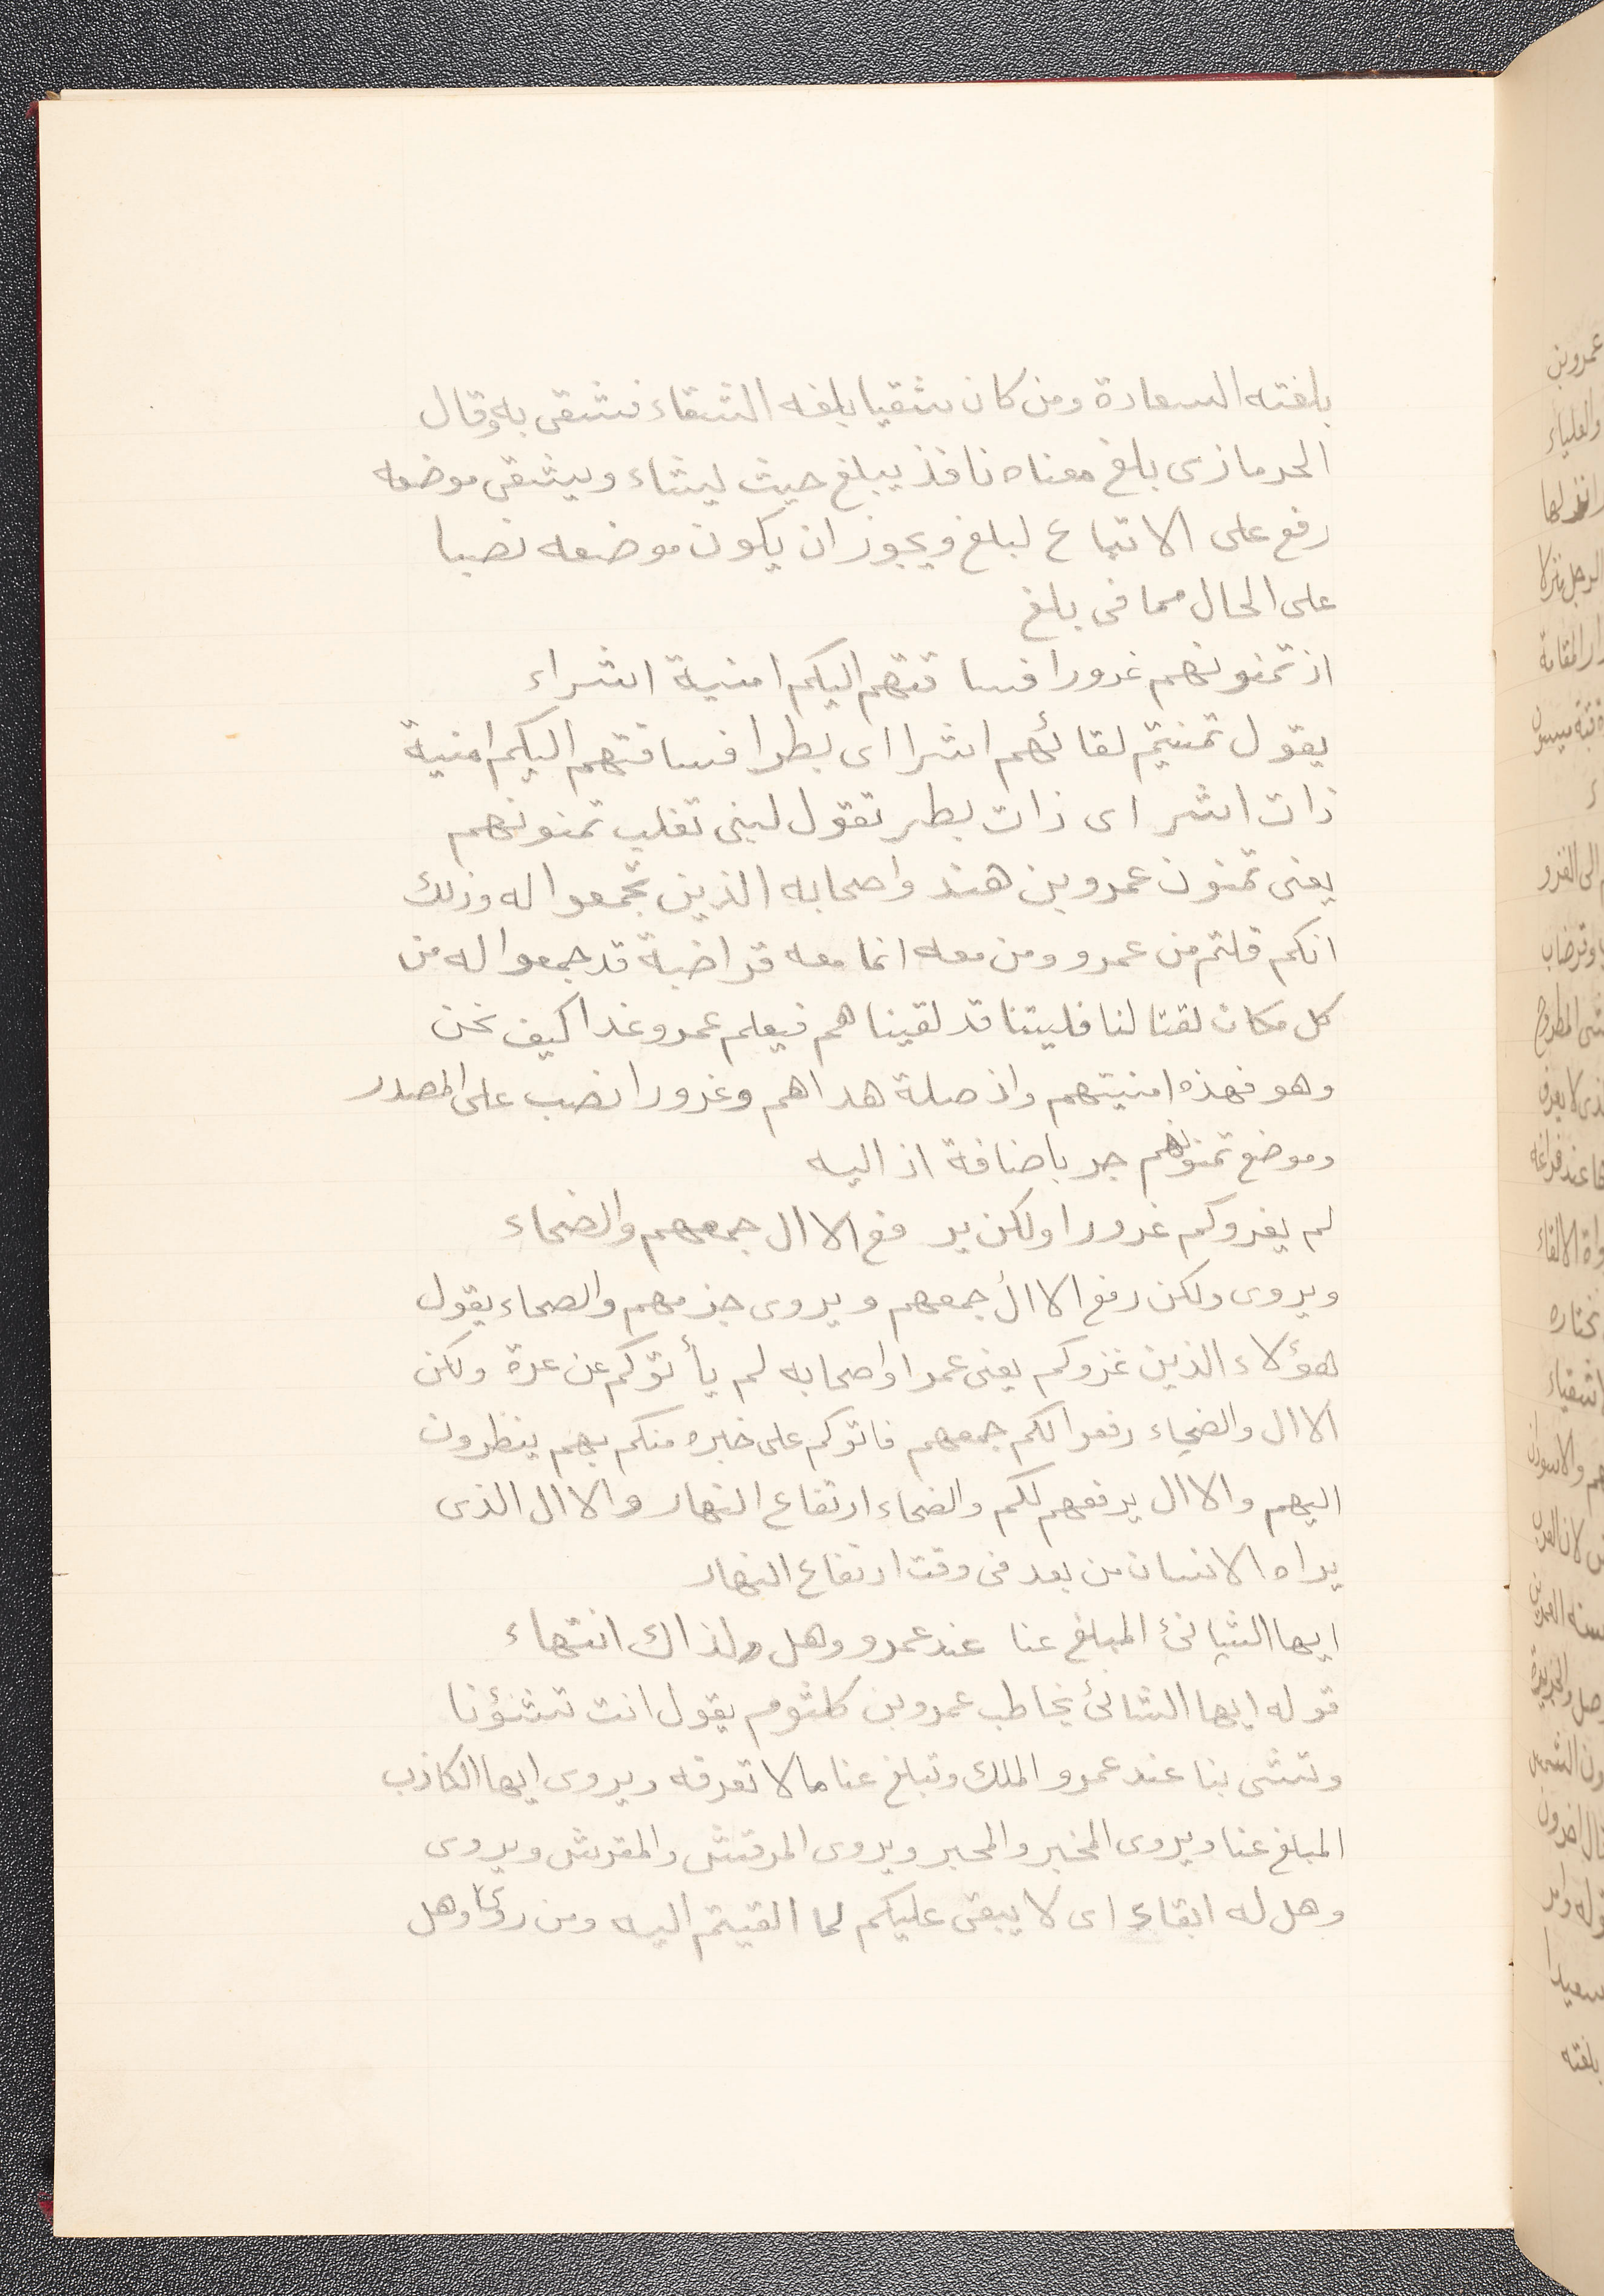 بلغته السعادة ومن كان شقيا بلغه الشقاء فشقى به وقال
الحرمازى بلغ معناه نافذ يبلغ حيث يشاء ويشقى موضعه
رفع على الاتباع لبلغ ويجوز ان يكون موضعه نصبا
على الحال مما فى بلغ
اذ تمنونهم غرورا فسا قتهم اليكم امنية اشراء
يقول تمنيتم لقائهم اشرا اى بطرا فساقتهم اليكم امنية
ذات اشر اى ذات بطر تقول لبنى تغلب تمنونهم
يعنى تمنون عمرو بن هند واصحابه الذين تجمعوا له وذلك
انكم قلتم من عمرو ومن معه انما معه قراضبة قد جمعوا له من
كل مكان لقتالنا فليتنا قد لقيناهم فيعلم عمرو غدا كيف نحن
وهو فهذه امنيتهم واذ صلة هداهم وغرورا نصب على المصدر
وموضع تمنونهم جر باضافة اذ اليه
لم يغروكم غرورا ولكن ير فع الاال جمعهم والضحاء
ويروى ولكن رفع الاال جمعهم ويروى جذمهم والصحاء يقول
هؤلاء الذين غزوكم يعنى عمرا واصحابه لم يأتوكم عن غرة ولكن
الاال والضحاء رفعوا لكم جمعهم فاتوكم على خبره منكم بهم ينظرون
اليهم والاال يرفعهم لكم والضحاء ارتفاع النهار والاال الذى
يراه الانسان من بعد فى وقت ارتفاع النهار
ايها الشانئ المبلغ عنا عند عمرو وهل لذاك انتهاء
قوله ايها الشانئ يخاطب عمرو بن كلثوم يقول انت تشنؤنا
وتشى بنا عند عمرو الملك وتبلغ عنا ما لا تعرفه ويروى ايها الكاذب
المبلغ عنا ويروى المخبر والمحبر ويروى المرقش والمقرش ويروى
وهل له ابقاء اى لا يبقى عليكم لما القيتم اليه ومن روى وهل